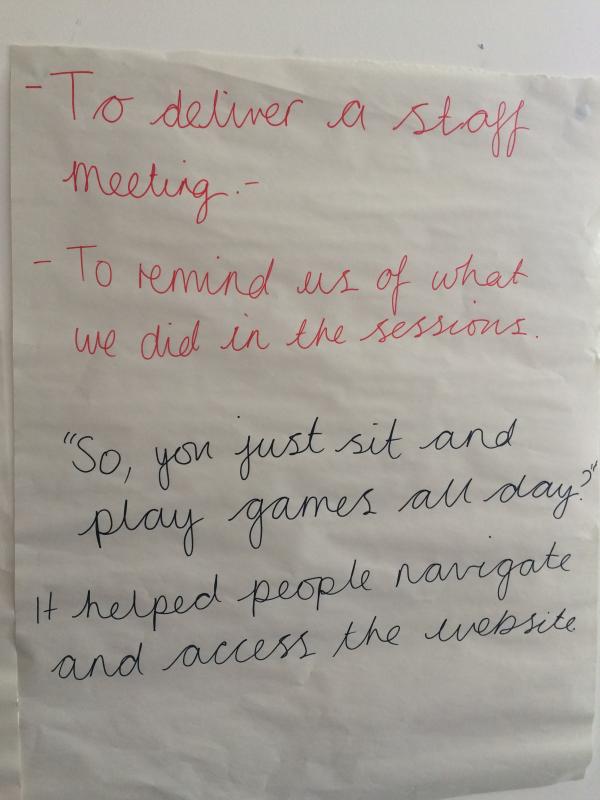 - To deliver a staff
meeting.-
- To remind us of what
we did in the sessions.
"So, you just sit and
play games all day?"
It helped people navigate
and access the website